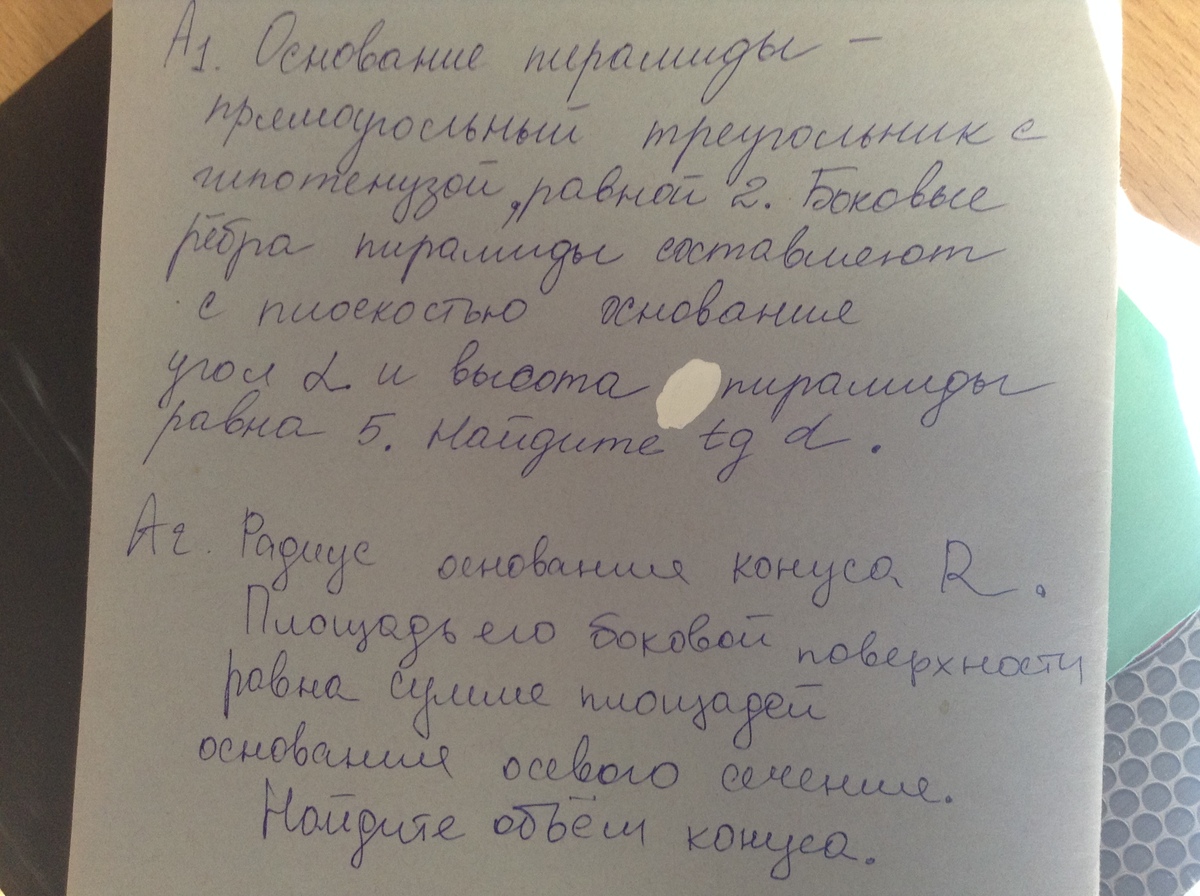 А1. Основание пирамиды –
прямоугольный треугольник с
гипотенузой, равной 2. Боковые
рёбра пирамиды составляют
с плоскостью основания
угол α и высота пирамиды
равна 5. Найдите tg α.
А2. Радиус основания конуса R.
Площадь его боковой поверхности
равна сумме площадей
основания осевого сечения.
Найдите объём конуса.